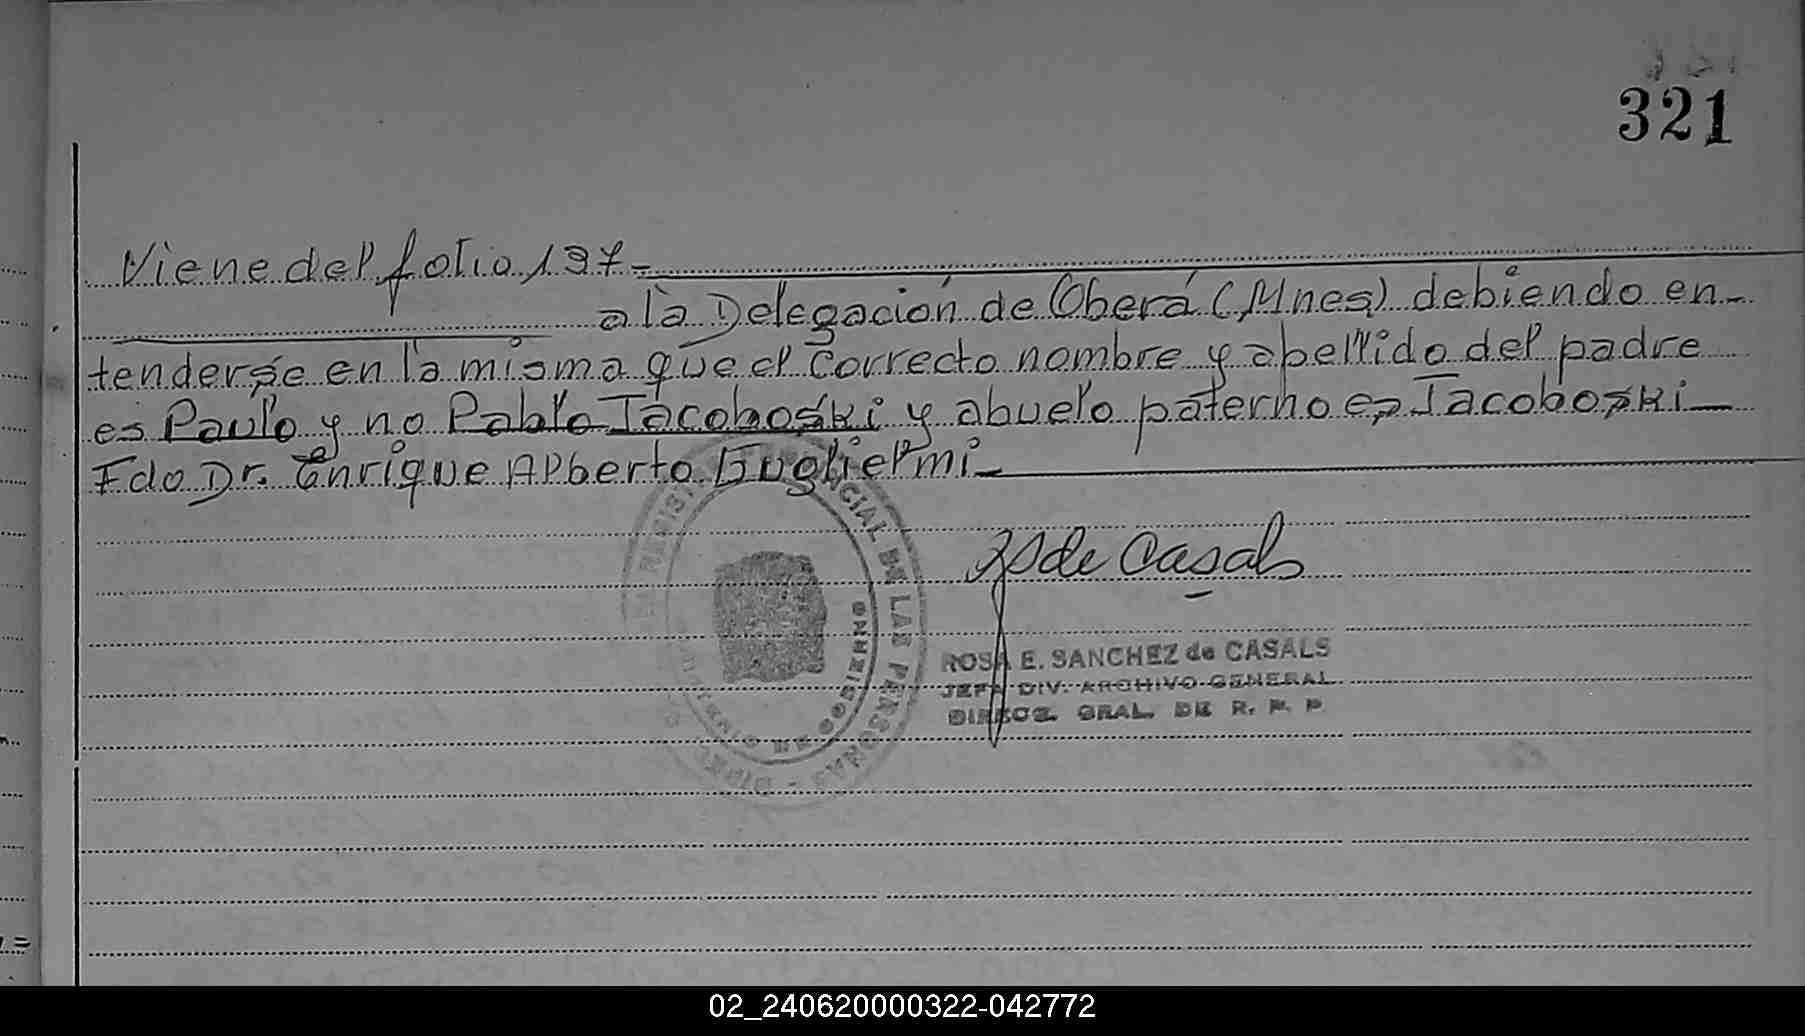 321
Viene del folio 197-
a la Delegación de Oberá (Mnes) debiendo en-
tenderse en la misma que el correcto nombre y apellido del padre
es Paulo y no Pablo Jacoboski y abuelo paterno es Jacoboski
Fdo Dr. Enrique Alberto Guglielmi-
de Casals
ROSA E. SANCHEZ de CASALS
JEFA DIV. ARCHIVO GENERAL
DIRECC. GRAL. DE R. P. P.
PROVINCIAL DE LAS PERSONAS
02_240620000322-042772